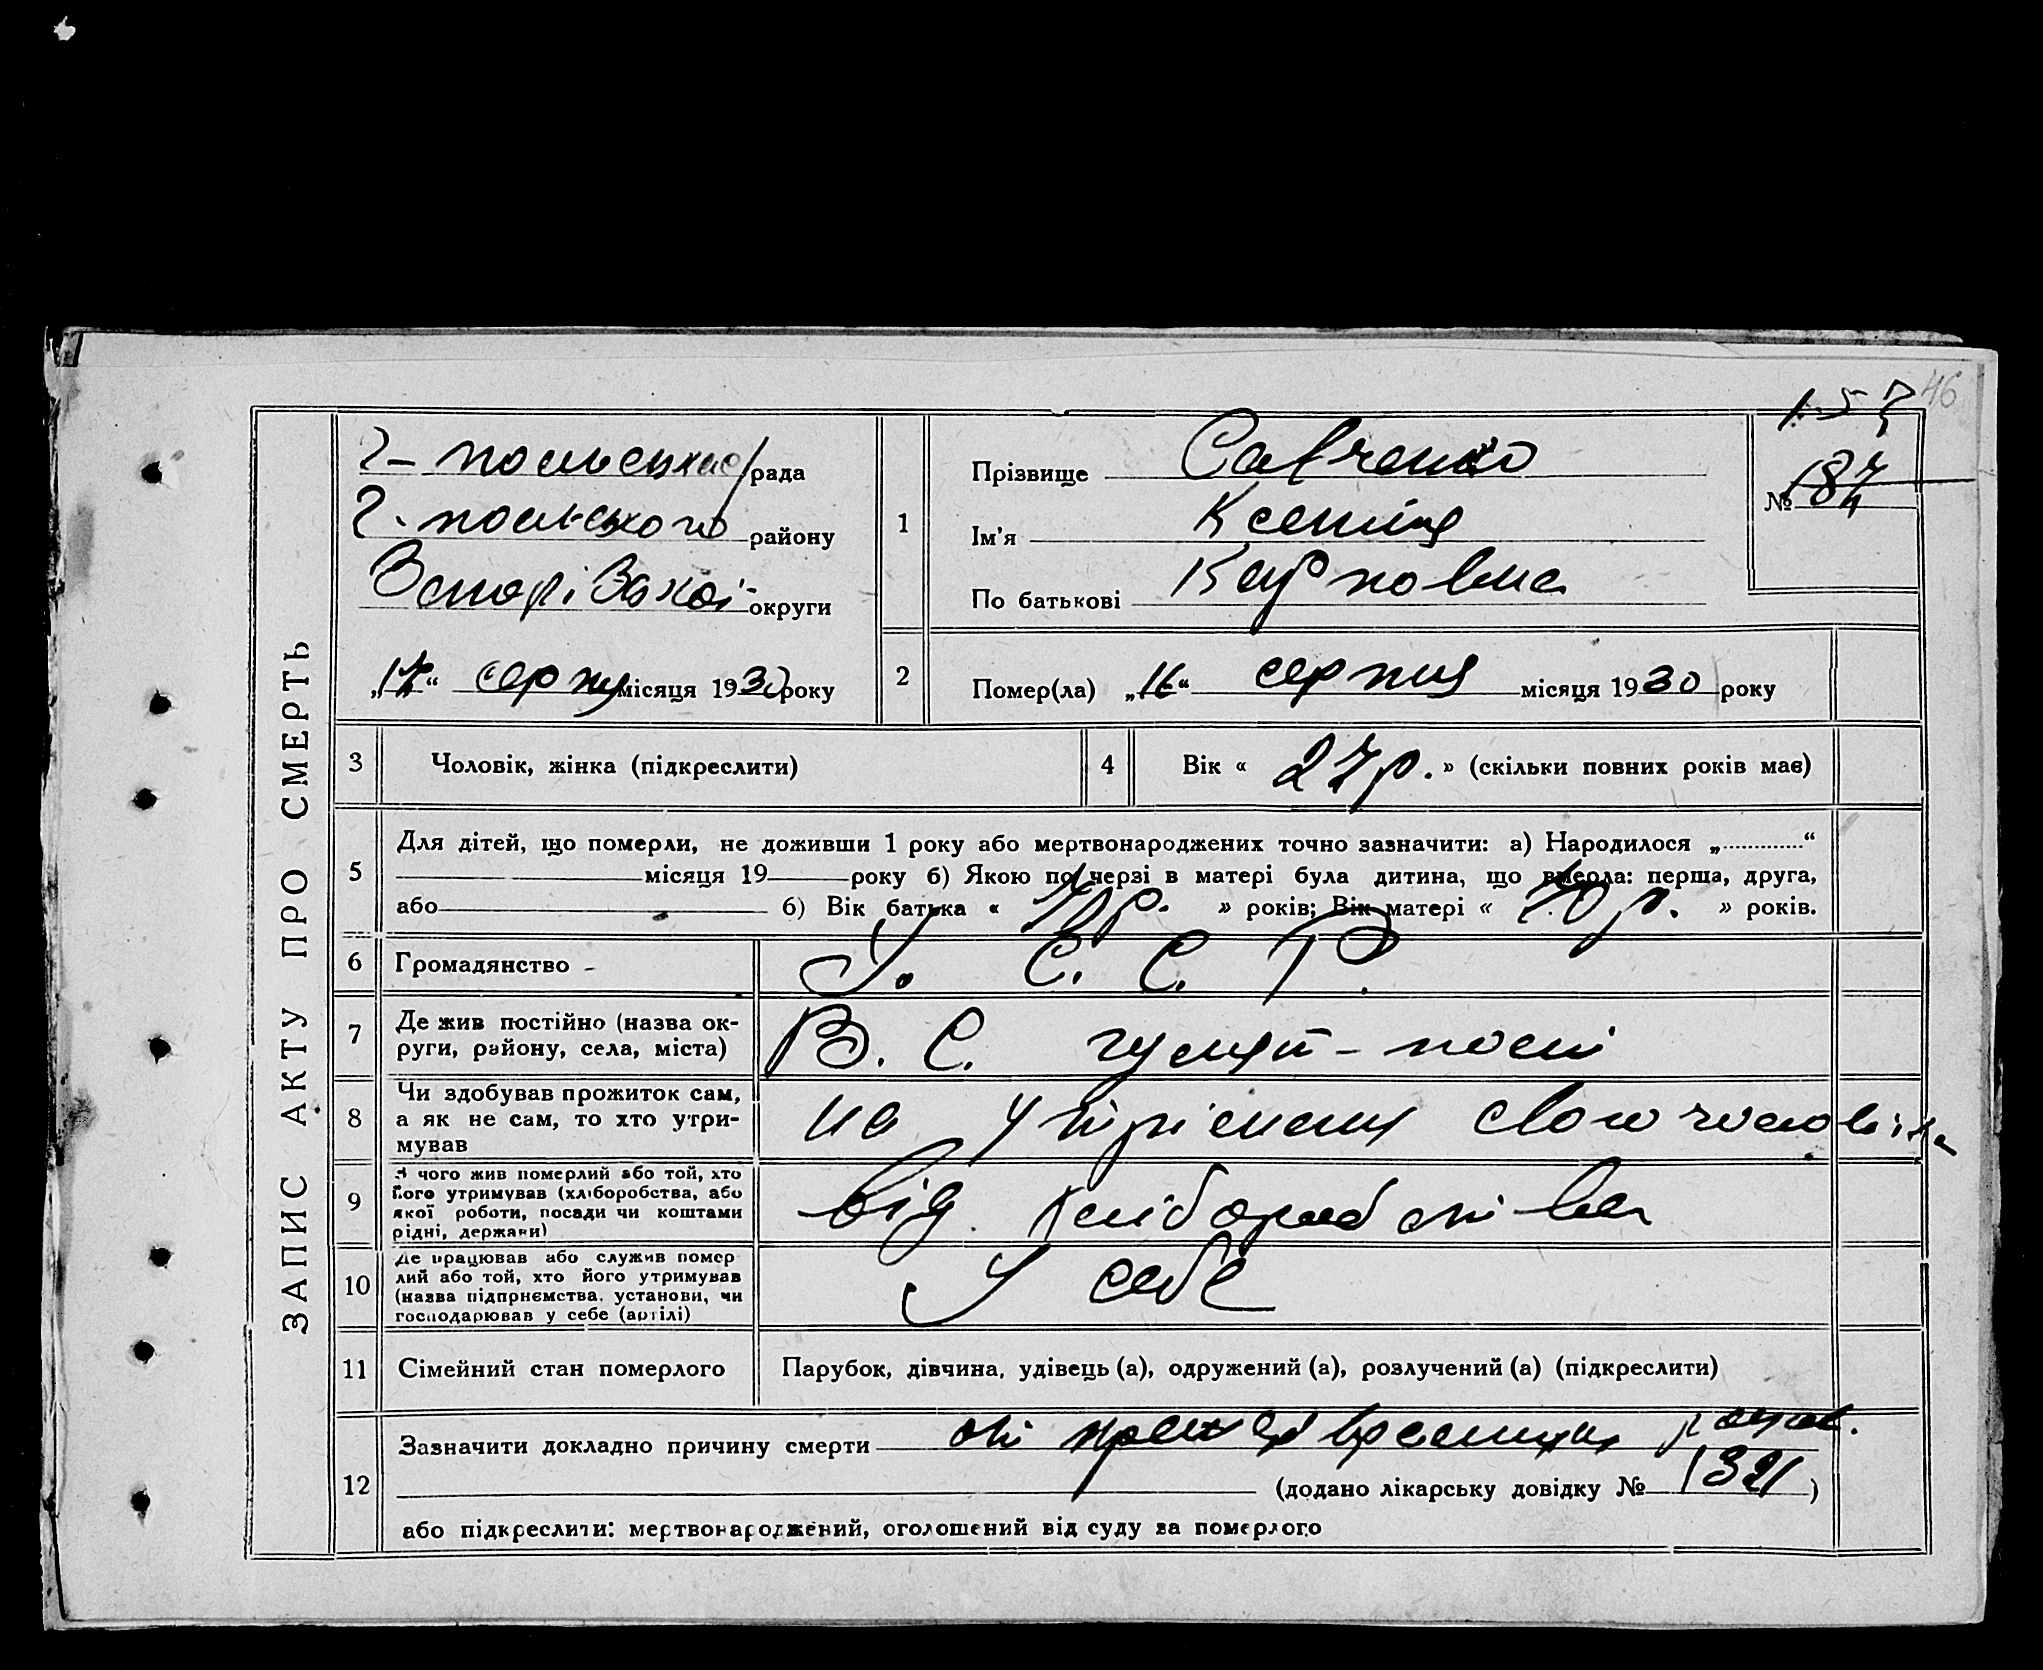 46
157
ЗАПИС АКТУ ПРО СМЕРТЬ
Г-польська рада
Г-польського району
Запорізької округи
„17“ серпня місяця 1930 року
1
Прізвище Савченко
Ім'я Ксенія
По батькові Карповна
№ 187
2
Помер(ла) „16“ серпня місяця 1930 року
3
Чоловік, жінка (підкреслити)
4
Вік « 27 р. » (скільки повних років має)
5
Для дітей, що померли, не доживши 1 року або мертвонароджених точно зазначити: а) Народилося „ “
місяця 19 року б) Якою по черзі в матері була дитина, що вмерла: перша, друга,
або б) Вік батька « р. » років; Вік матері « р. » років.
6
Громадянство - У. С. С. Р.
7
Де жив постійно (назва ок-
руги, району, села, міста)
В. С. Гуляй-полі
8
Чи здобував прожиток сам,
а як не сам, то хто утри-
мував
на утріманні свого чоловіка
9
З чого жив померлий або той, хто
його утримував (хліборобства, або
якої роботи, посади чи коштами
рідні, держави)
від хліборобства
10
Де працював або служив помер
лий або той, хто його утримував
(назва підприємства, установи, чи
господарював у себе (артілі)
У себе
11
Сімейний стан померлого
Парубок, дівчина, удівець (а), одружений (а), розлучений (а) (підкреслити)
12
Зазначити докладно причину смерти от
(додано лікарську довідку № 1321)
або підкреслити: мертвонароджений, оголошений від суду за померлого